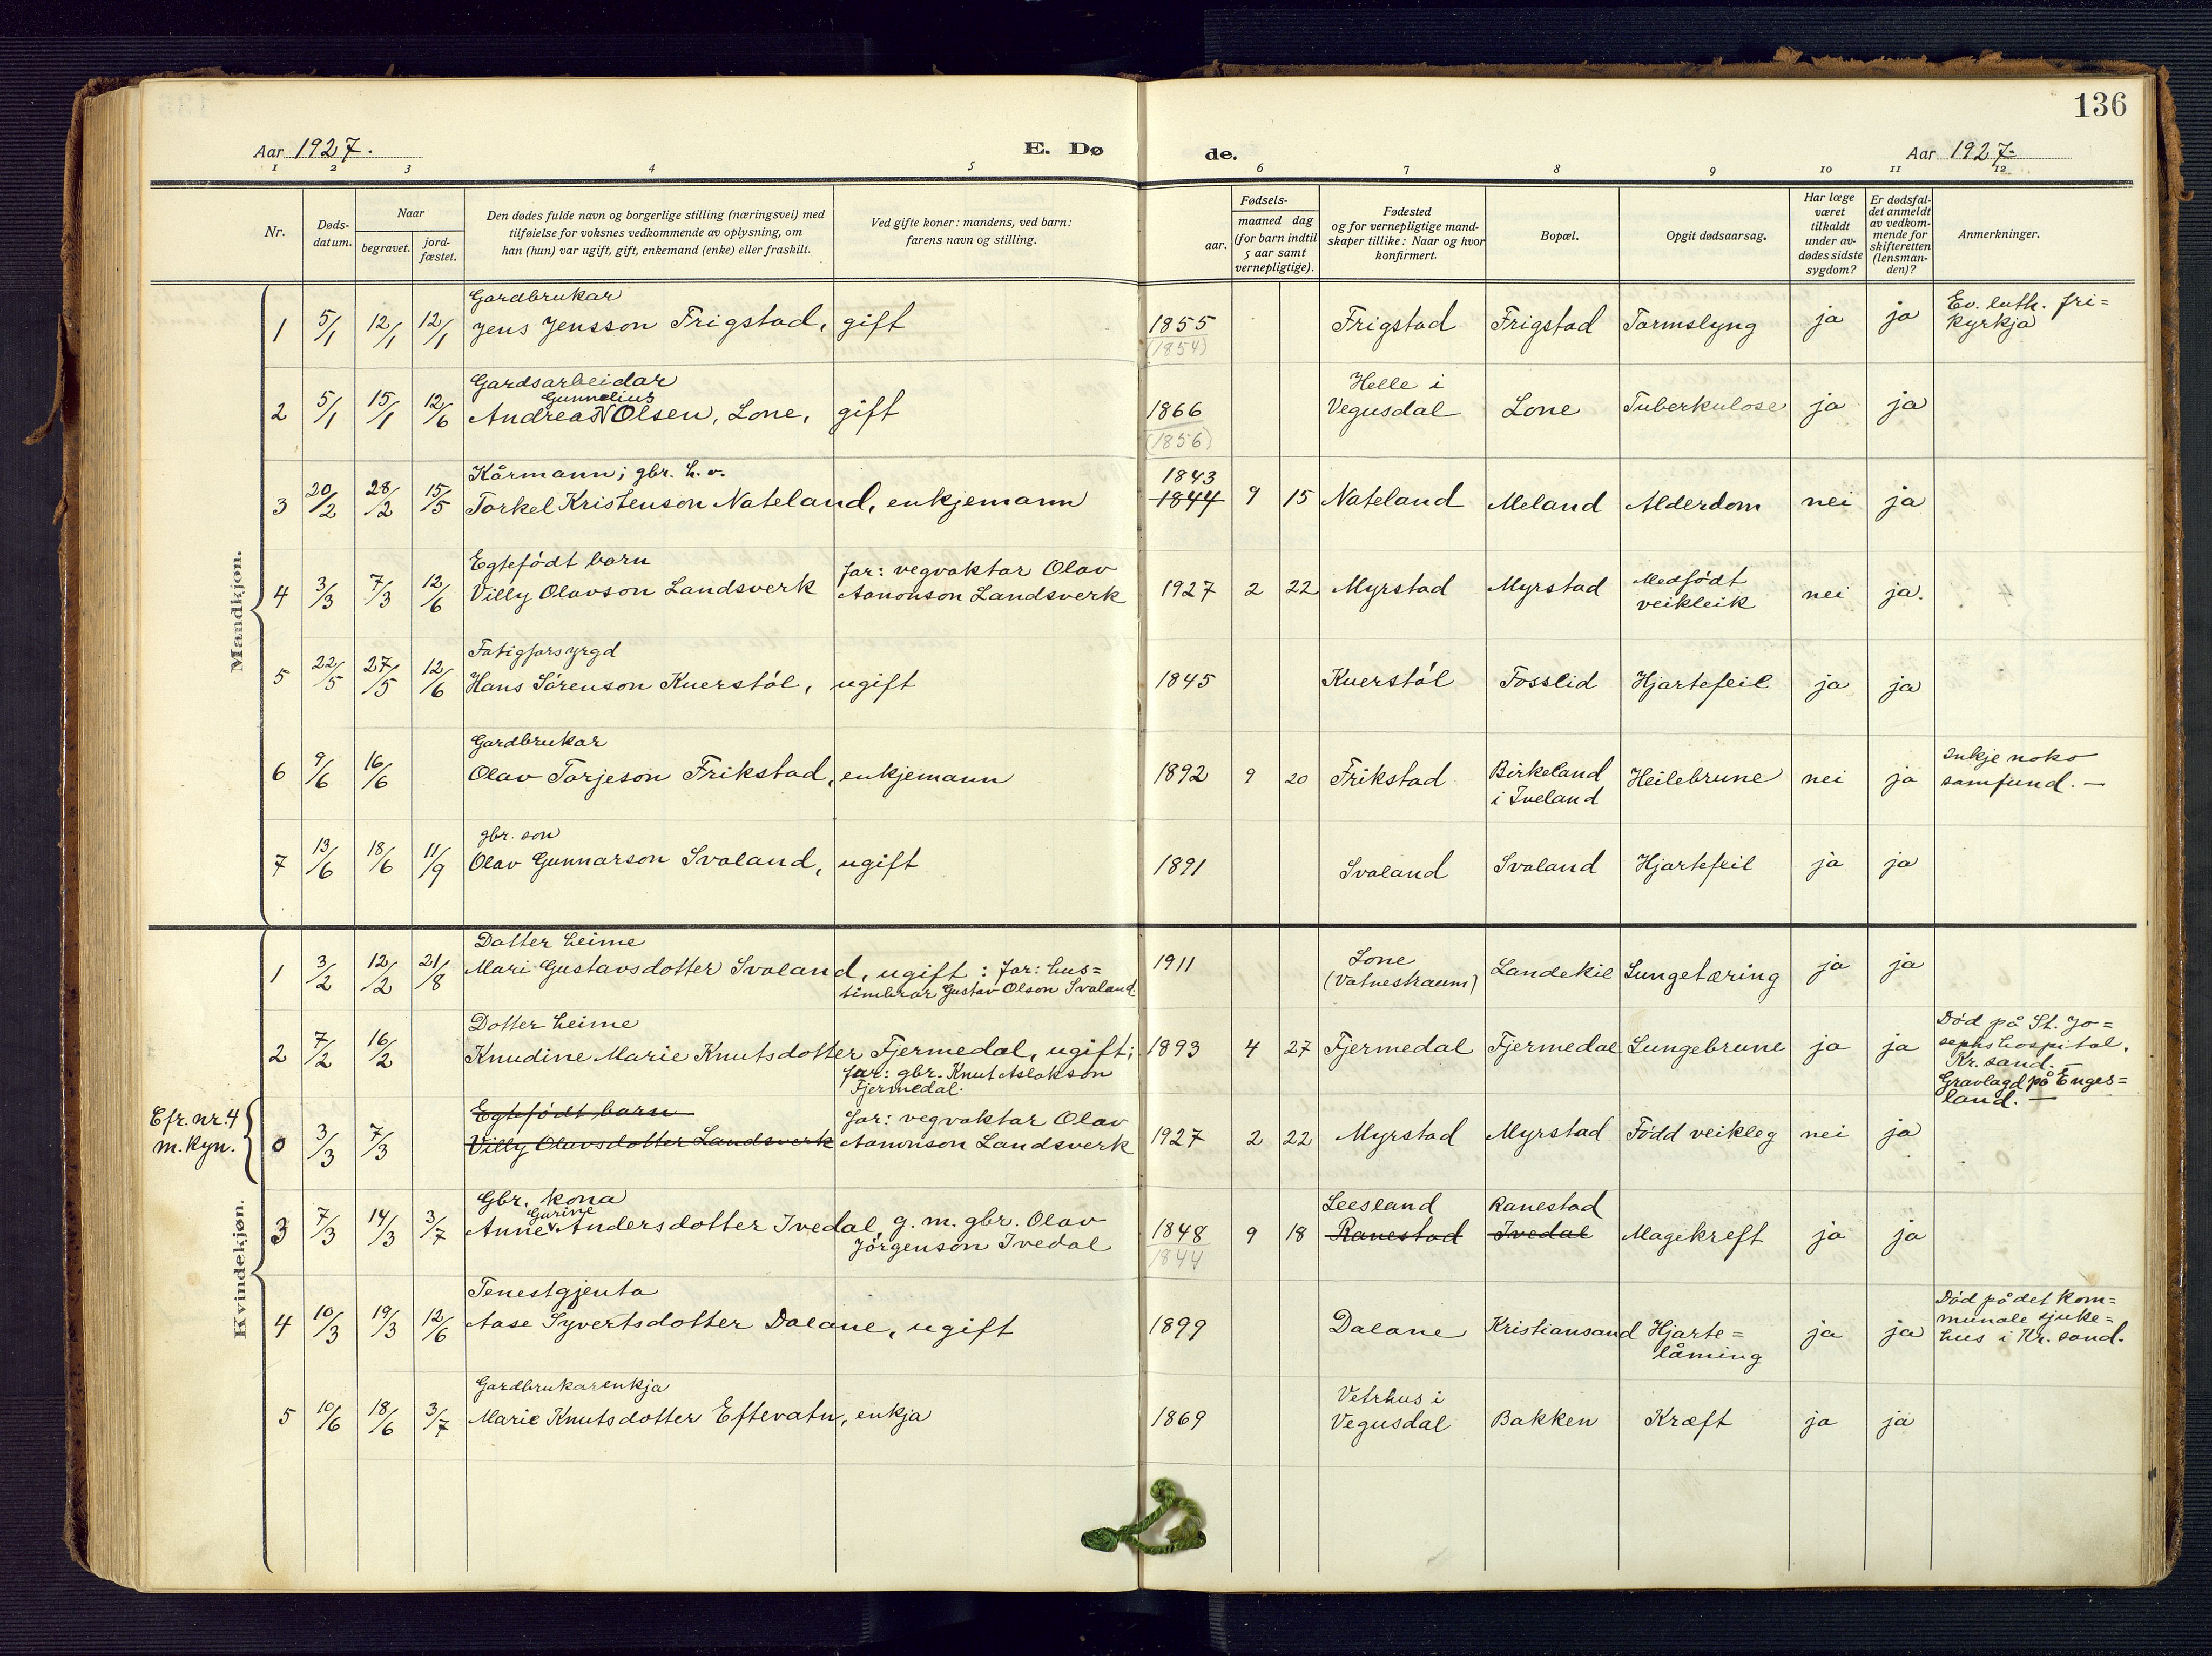 136
Aar 1927.
E. Dø de.
Aar 1927.
1 2 3 4 5 6 7 8 9 10 11 12
Nr.
Døds-
datum.
Naar
begravet.
jord-
fæstet.
Den dødes fulde navn og borgerlige stilling (næringsvei) med
tilføielse for voksnes vedkommende av oplysning, om
han (hun) var ugift, gift, enkemand (enke) eller fraskilt.
Ved gifte koner: mandens, ved barn:
farens navn og stilling.
Fødsels-
aar.
maaned dag
(for barn indtil
5 aar samt
vernepligtige).
Fødested
og for vernepligtige mand-
skaper tillike: Naar og hvor
konfirmert.
Bopæl.
Opgit dødsaarsag.
Har læge
været
tilkaldt
under av-
dødes sidste
sygdom?
Er dødsfal-
det anmeldt
av vedkom-
mende for
skifteretten
(lensman-
den)?
Anmerkninger.
Mandkjøn.
Gardbrukar
1 5/1 12/1 12/1 Jens Jensson Frigstad, gift 1855 Frigstad Frigstad Tarmslyng ja ja Ev. luth. fri=
(1854) kyrkja
Gardsarbeidar
Gunnelius
2 5/1 15/1 12/6 Andreas V Olsen, Lone, gift 1866 Helle i
Vegusdal Lone Tuberkulose ja ja
(1856)
Kårmann; gbr. h. v.
3 20/2 28/2 15/5 Torkel Kristenson Nateland, enkjemann 1843
1844 9 15 Nateland Meland Alderdom nei ja
Egtefödt barn
4 3/3 7/3 12/6 Villy Olavson Landsverk Far: vegvaktar Olav
Aanonson Landsverk 1927 2 22 Myrstad Myrstad Medfödt
veikleik nei ja.
Fatigforsyrgd
5 22/5 27/5 12/6 Hans Sörenson Kuerstöl, ugift 1845 Kuerstöl Fosslid Hjartefeil ja ja
Gardbrukar
6 9/6 16/6 Olav Tarjeson Frikstad, enkjemann 1892 9 20 Frikstad Birkeland
i Iveland Heilebrune nei ja Inkje noko
samfund. —
gbr. son
7 13/6 18/6 11/9 Olav Gunnarson Svaland, ugift 1891 Svaland Svaland Hjartefeil ja ja
Kvindekjøn.
Dotter heime
1 3/2 12/2 21/8 Mari Gustavsdotter Svaland, ugift: Far: hus=
timbrar Gustav Olson Svaland 1911 Lone
(Vatnestraum) Landekil Lungetæring ja ja
Dotter heime
2 7/2 16/2 Knudine Marie Knutsdotter Fjermedal, ugift;
Far: gbr. Knut Aslakson
Fjermedal. 1893 4 27 Fjermedal Fjermedal Lungebrune ja ja Död på St. Jo=
sephs hospital.
Kr.sand. —
Gravlagd på Enges=
land. —
Efr. nr. 4
m. kyn.
Egtefödt barn
0 3/3 7/3 Villy Olavsdotter Landsverk Far: vegvaktar Olav
Aanonson Landsverk 1927 2 22 Myrstad Myrstad Född veikleg nei ja
Gbr. kona
Gurine
3 7/3 14/3 3/7 Anne v Andersdotter Ivedal g. m. gbr. Olav
Jörgenson Ivedal 1848
1844 9 18 Leesland
Ranestad Ranestad
Ivedal Magekreft ja ja
Tenestgjenta
4 10/3 19/3 12/6 Aase Syvertsdotter Dalane, ugift 1899 Dalane Kristiansand Hjarte=
låming ja ja Död på det kom=
munale sjuke=
hus i Kr.sand.
Gardbrukarenkja
5 10/6 18/6 3/7 Marie Knutsdotter Eftevatn, enkja 1869 Vetrhus i
Vegusdal Bakken Kræft ja ja